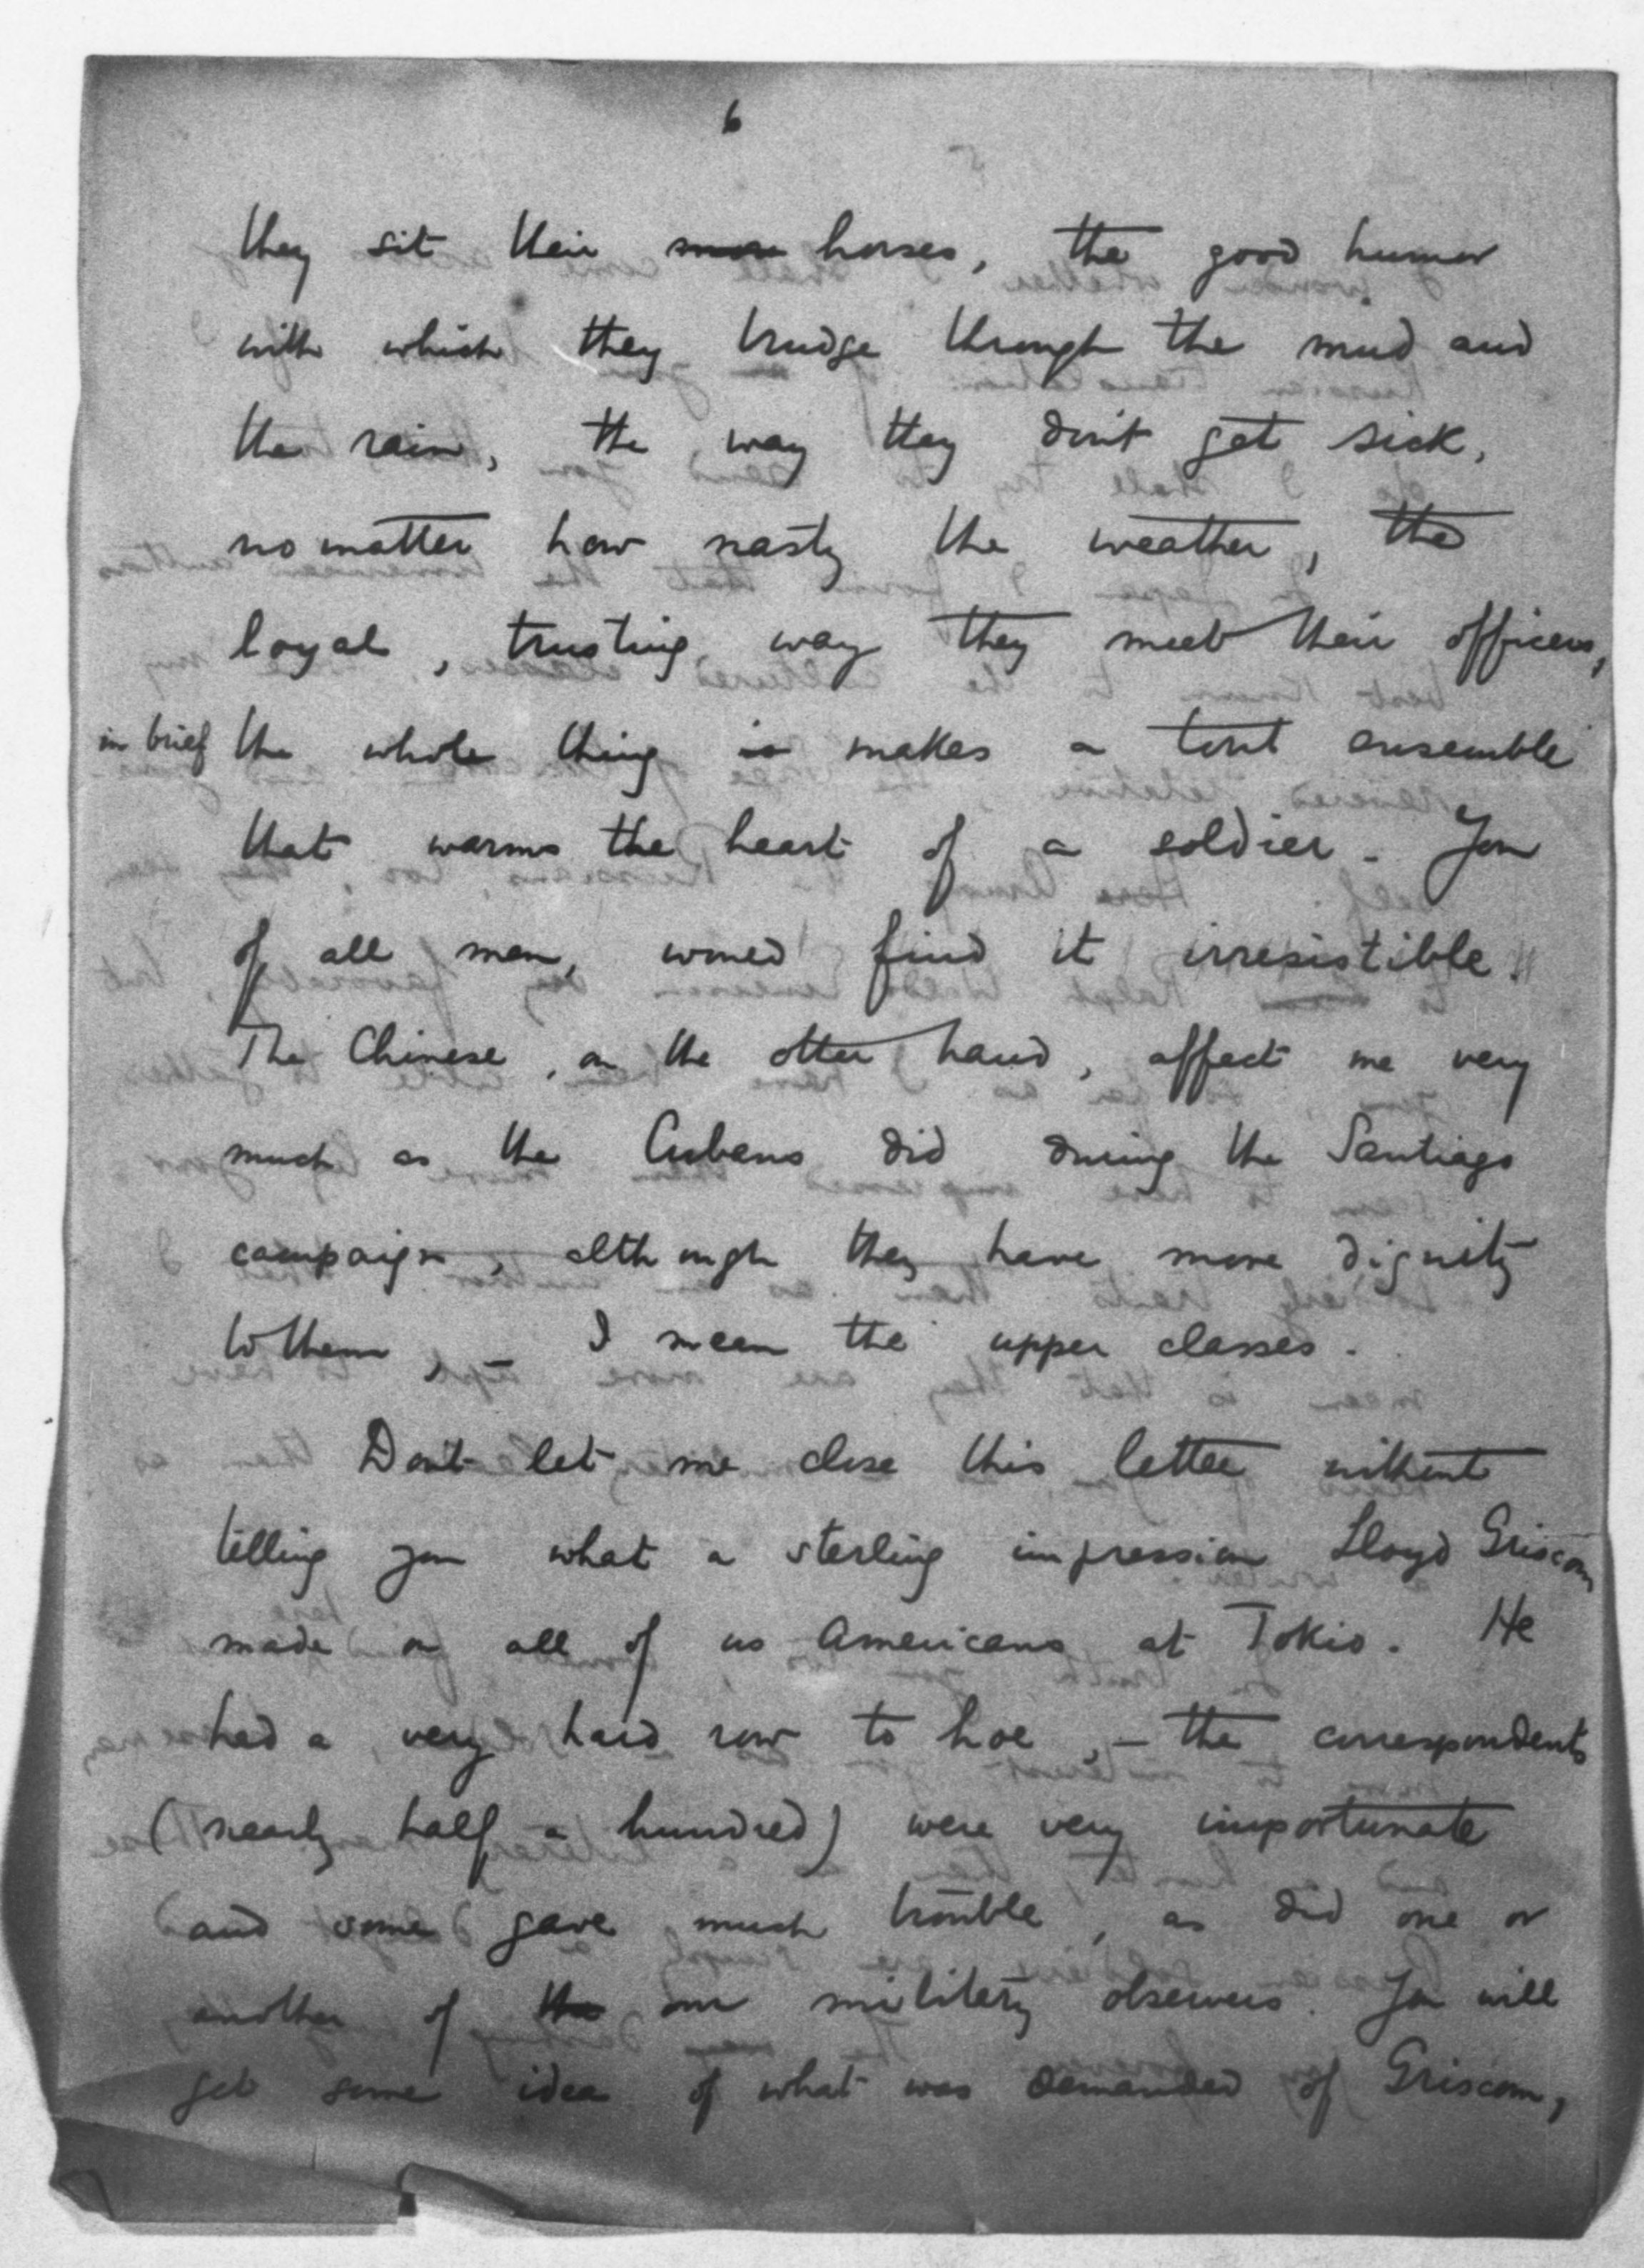 6
they sit their more horses, the good humor
with which they trudge through the mud and
the rain, the way they don't get sick,
no matter how nasty the weather, the
loyal, trusting way they meet their officers,
in brief the whole thing is makes a tout ensemble
that warms the heart of a soldier. You
of all men, would find it irresistible.
The Chinese, on the other hand, affect me very
much as the Cubans did during the Santiago
campaign, although they have more dignity
to them, – I mean the upper classes.
Don't let me close this letter without
telling you what a sterling impression Lloyd Griscom
made on all of us Americans at Tokio. He
had a very hard row to hoe, – the correspondents
(nearly half a hundred) were very importunate
and some gave much trouble, as did one or
another of the our military observers. You will
get some idea of what was demanded of Griscom,